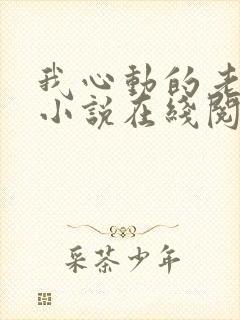 我心動的老
小説在綫閱
采茶少年